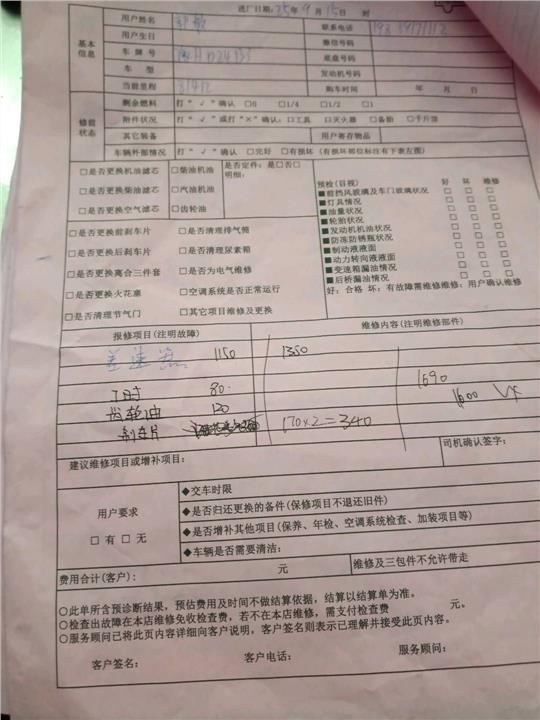 进厂日期：25年9月15日 时
基本信息
用户姓名 联系电话
用户生日 微信号码
车牌号 底盘号码
车型 发动机号码
当前里程 31412 购车时间 年 月 日
修前状态
剩余燃料 打“√”确认 □0 □1/4 □1/2 □1
附件状况 打“√”或打“×”确认：□工具 □灭火器 □备胎 □千斤顶
其它装备 用户寄存物品
车辆外部情况 打“√”确认 □完好 □有损坏（有损坏部位标注有下表左图）
□是否更换机油滤芯 □柴油机油 是否定件：是□否□
明细：
□是否更换柴油滤芯 □汽油机油
□是否更换空气滤芯 □齿轮油
□是否更换前刹车片 □是否清理排气筒
□是否更换后刹车片 □是否清理尿素箱
□是否更换离合三件套 □是否为电气维修
□是否更换火花塞 □空调系统是否正常运行
□是否清理节气门 □其它项目维修及更换
预检(目视) 好 坏 维修
■前挡风玻璃及车门玻璃状况 □ □ □
■灯具情况 □ □ □
■油量状况 □ □ □
■轮胎状况 □ □ □
■发动机机油状况 □ □ □
■防冻防锈瓶状况 □ □ □
■制动液液面 □ □ □
■动力转向液液面 □ □ □
■变速箱漏油情况 □ □ □
■后桥漏油情况 □ □ □
好：合格 坏：有故障需维修维修：用户确认维修
报修项目(注明故障) 维修内容(注明维修部件)
差速器 1150 1350
工时 80. 1690
齿轮油 120 1600
刹车片 170×2=340
建议维修项目或增补项目： 司机确认签字：
用户要求
□有 □无
◆交车时限
◆是否归还更换的备件（保修项目不退还旧件）
◆是否增补其他项目（保养、年检、空调系统检查、加装项目等）
◆车辆是否需要清洁：
费用合计(客户)： 元 维修及三包件不允许带走
○此单所含预诊断结果，预估费用及时间不做结算依据，结算以结算单为准。
○检查出故障在本店维修免收检查费，若不在本店维修，需支付检查费 元。
○服务顾问已将此页内容详细向客户说明，客户签名则表示已理解并接受此页内容。
客户签名： 客户电话： 服务顾问：